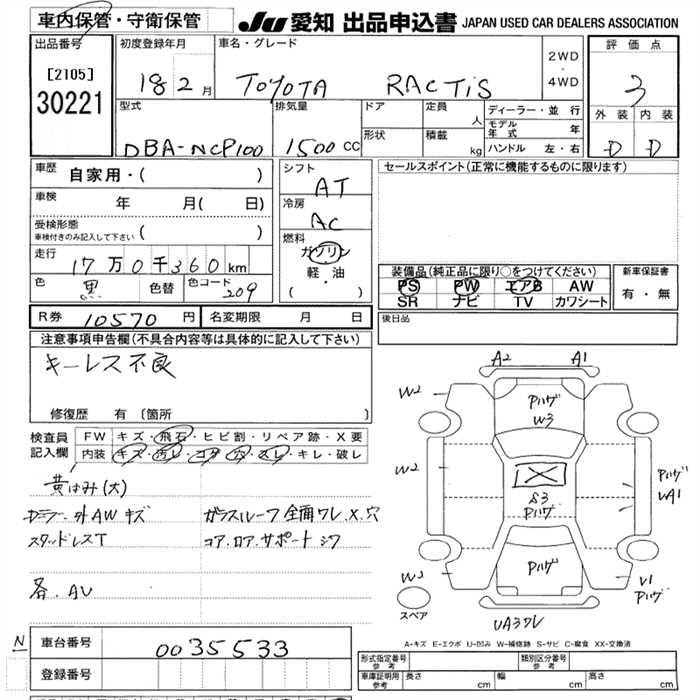 車内保管・守衛保管
JU 愛知 出品申込書 JAPAN USED CAR DEALERS ASSOCIATION
出品番号
[2105]
30221
初度登録年月
18 2 月
車名・グレード
TOYOTA RACTIS
2WD
・
4WD
評価点
3
外装 内装
D D
型式
DBA-NCP100
排気量
1500 CC
ドア
定員
人
形状
積載
kg
ディーラー・並 行
モデル年式 年
ハンドル 左・右
車歴 自家用・( )
車検 年 月( 日)
受検形態
車検付きのみ記入して下さい ( )
走行 17万0千360 km
色 黒 色替 色コード 209
シフト
AT
冷房
AC
燃料
ガソリン
・
軽・油
( )
セールスポイント(正常に機能するものに限ります)
装備品(純正品に限り○をつけてください)
PS PW エアB AW
SR ナビ TV カワシート
新車保証書
有・無
R券 10570 円 名変期限 月 日
後日品
注意事項申告欄(不具合内容等は具体的に記入して下さい)
キーレス不良
修復歴 有 〔箇所 〕
検査員
記入欄
FW キズ・飛石・ヒビ割・リペア跡・X要
内装 キズ・汚レ・コゲ・穴・スレ・キレ・破レ
黄ばみ(大)
外AWキズ ガラスルーフ全面ワレ.X.穴
スタッドレスT コア.ロア.サポートシワ
各.AU
A2 A1
W2 Pハゲ
W3
W2 S3
Pハゲ
Pハゲ
UA1
W3 Pハゲ
V1
Pハゲ
スペア UA3ワレ
A-キズ E-エクボ U-凹み W-補修跡 S-サビ C-腐食 XX-交換済
N
車台番号 0035533
登録番号
形式指定番号
参考
類別区分番号
参考
車庫証明用
参考
長さ cm 幅 cm 高さ cm